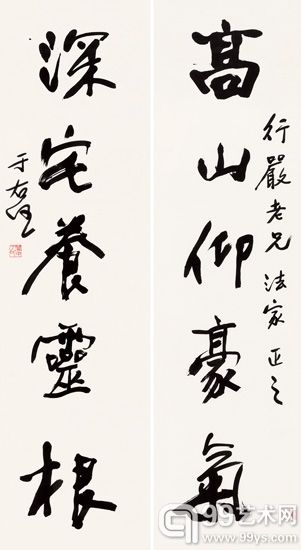 高山仰豪氣
行嚴老兄 法家 正之
深宅養靈根
于右任
99艺术网
www.99ys.com